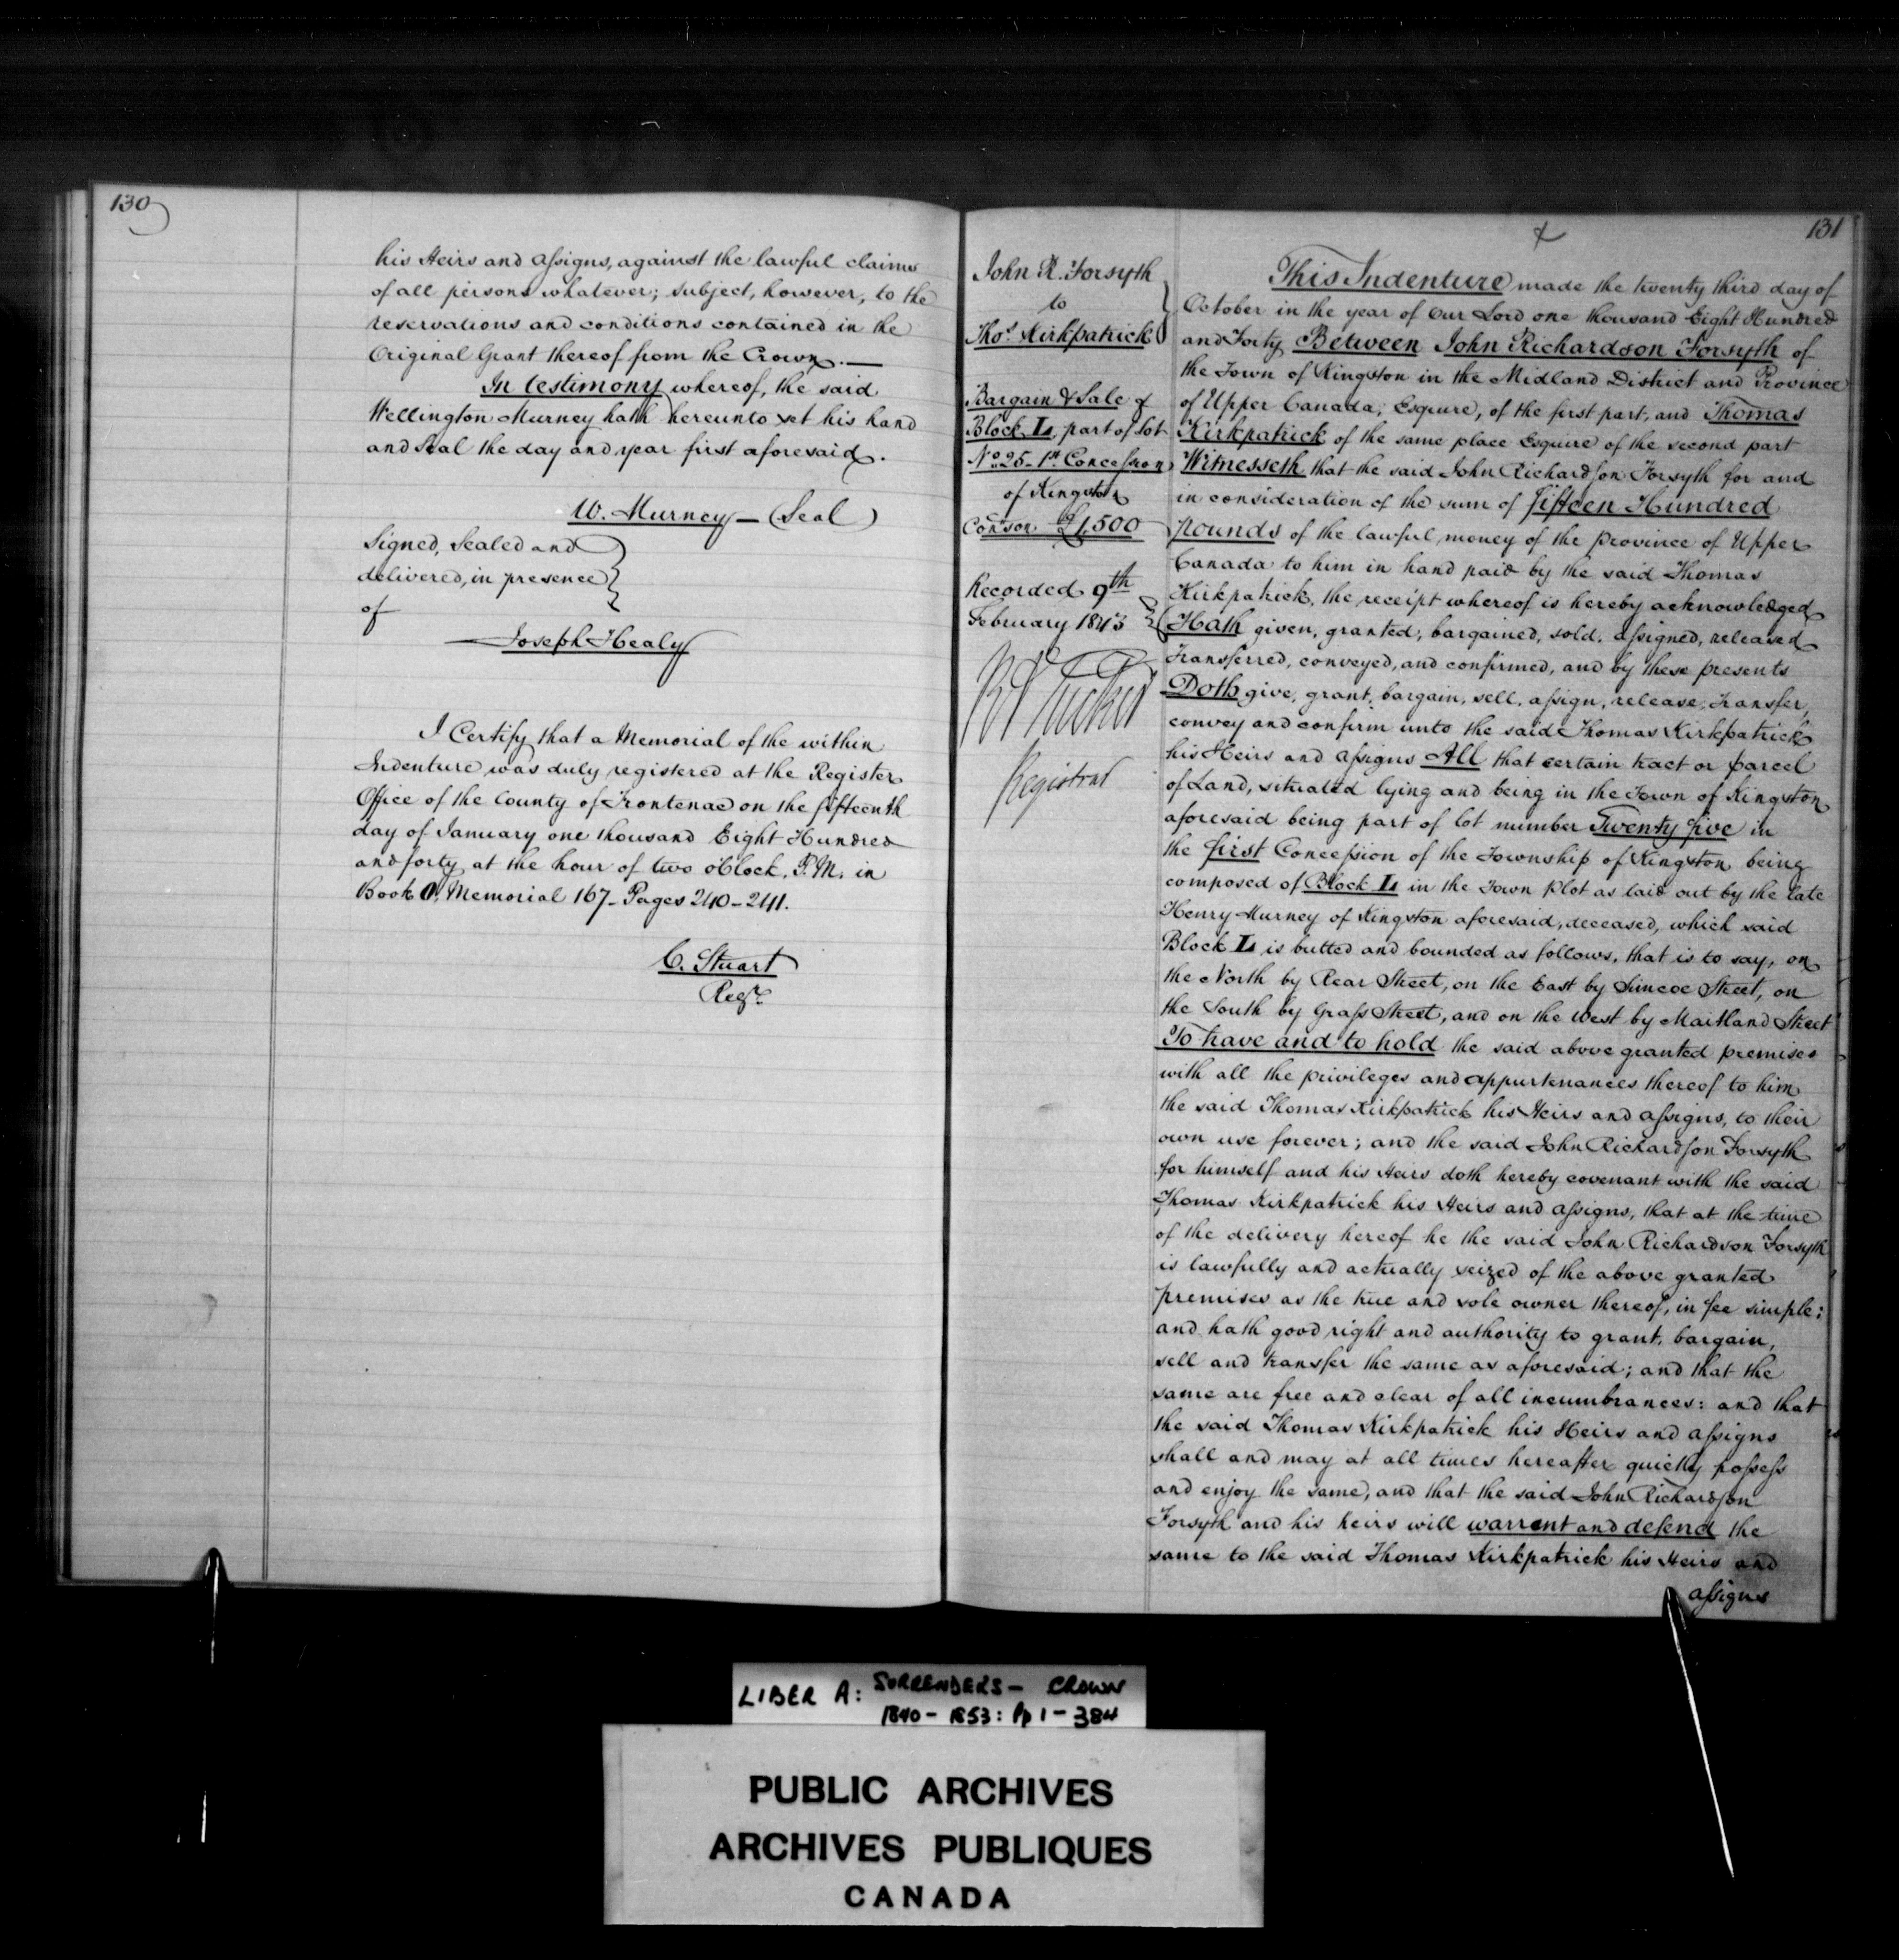 130
his Heirs and assigns, against the lawful claims
of all persons whatever; subject, however, to the
reservations and conditions contained in the
Original Grant thereof from the Crown. —
In testimony whereof, the said
Wellington Murney hath hereunto set his hand
and Seal the day and year first aforesaid.
W. Murney — (Seal)
Signed, Sealed and
delivered, in presence
of
Joseph Healy
I Certify that a Memorial of the within
Indenture was duly registered at the Register
Office of the County of Frontenac on the fifteenth
day of January one thousand Eight Hundred
and forty at the hour of two o'Clock, P.M. in
Book O, Memorial 167 - Pages 240 - 241.
C. Stuart
Regr.
131
John R. Forsyth
to
Thos. Kirkpatrick
Bargain & Sale of
Block L, part of lot
No. 25 - 1st Concession
of Kingston
Con'son £1,500
Recorded 9th
February 1843
Registrar
This Indenture made the twenty third day of
October in the year of Our Lord one thousand Eight Hundred
and Forty Between John Richardson Forsyth of
the Town of Kingston in the Midland District and Province
of Upper Canada, Esquire, of the first part, and Thomas
Kirkpatrick of the same place Esquire of the second part
Witnesseth that the said John Richardson Forsyth for and
in consideration of the sum of fifteen Hundred
pounds of the lawful money of the Province of Upper
Canada to him in hand paid by the said Thomas
Kirkpatrick, the receipt whereof is hereby acknowledged
Hath given, granted, bargained, sold, assigned, released
Transferred, conveyed, and confirmed, and by these presents
Doth give, grant, bargain, sell, assign, release, transfer,
convey and confirm unto the said Thomas Kirkpatrick
his Heirs and assigns All that certain tract or parcel
of Land, situated lying and being in the Town of Kingston
aforesaid being part of lot number Twenty five in
the first Concession of the Township of Kingston being
composed of Block L in the Town Plot as laid out by the late
Henry Murney of Kingston aforesaid, deceased, which said
Block L is butted and bounded as follows, that is to say, on
the North by Rear Street, on the East by Simcoe Street, on
the South by Grass Street, and on the West by Maitland Street
To have and to hold the said above granted premises
with all the privileges and appurtenances thereof to him
the said Thomas Kirkpatrick his Heirs and assigns, to their
own use forever; and the said John Richardson Forsyth
for himself and his Heirs doth hereby covenant with the said
Thomas Kirkpatrick his Heirs and assigns, that at the time
of the delivery hereof he the said John Richardson Forsyth
is lawfully and actually seized of the above granted
premises as the true and sole owner thereof, in fee simple;
and hath good right and authority to grant, bargain,
sell and transfer the same as aforesaid; and that the
same are free and clear of all incumbrances: and that
the said Thomas Kirkpatrick his Heirs and assigns
shall and may at all times hereafter quietly possess
and enjoy the same, and that the said John Richardson
Forsyth and his heirs will warrent and defend the
same to the said Thomas Kirkpatrick his Heirs and
assigns
LIBER A: SURRENDERS - CROWN
1840 - 1853: Pp 1 - 384
PUBLIC ARCHIVES
ARCHIVES PUBLIQUES
CANADA